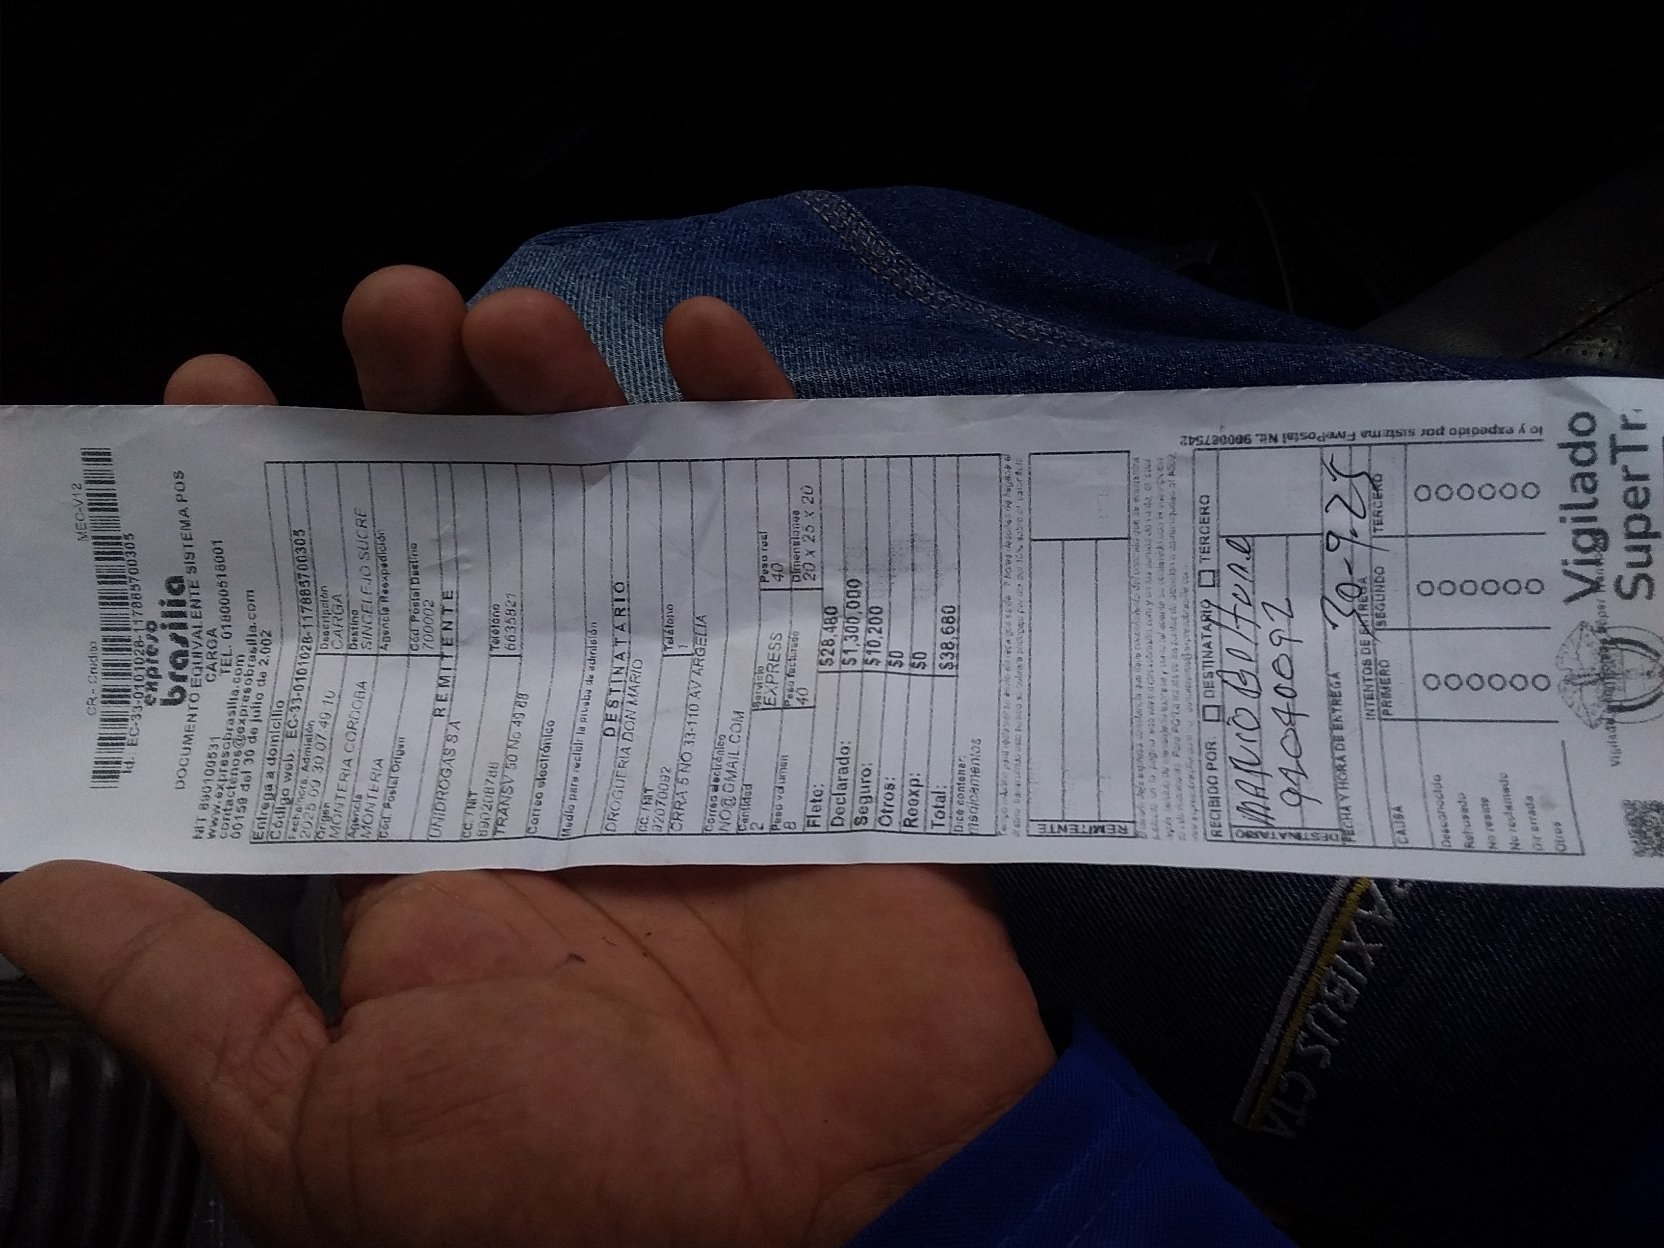 CR - Credito MEC-V12
Id. EC-33-0101028-1178857000305
expreso
brasilia
DOCUMENTO EQUIVALENTE SISTEMA POS
NIT 890100531 CARGA
www.expresobrasilia.com TEL. 018000518001
contactenos@expresobrasilia.com
00159 del 30 de julio de 2,002
Entrega a domicilio
Código web. EC-33-0101028-1178857000305
Fecha/hora Admisión Descripción
2025 09 30 07:49:10 CARGA
Origen Destino
MONTERIA CORDOBA SINCELEJO SUCRE
Agencia Agencia Reexpedición
MONTERIA
Cód. Postal Origen Cód Postal Destino
700002
REMITENTE
UNIDROGAS S.A
CC. NIT Teléfono
890208788 6635821
TRANSV 50 No 49 68
Correo electrónico
Medio para recibir la prueba de admisión
DESTINATARIO
DROGUERIA DON MARIO
CC. NIT Teléfono
92070092 1
CRRA 5 NO 33-110 AV ARGELIA
Correo electrónico
NO@GMAIL.COM
Cantidad Servicio Peso real
2 EXPRESS 40
Peso volumen Peso facturado Dimensiones
8 40 20 x 25 x 20
Flete: $28,480
Declarado: $1,300,000
Seguro: $10,200
Otros: $0
Reexp: $0
Total: $38,680
Dice contener:
medicamentos
REMITENTE
RECIBIDO POR: DESTINATARIO TERCERO
DESTINATARIO
MARIO Beltrane
94040092
FECHA Y HORA DE ENTREGA 30-9-25
INTENTOS DE ENTREGA
CAUSA PRIMERO SEGUNDO TERCERO
Desconocido
Rehusado
No reside
No reclamado
Dir errada
Otros
y expedido por sistema FivePostal Nit. 900087542
Vigilado
SuperTr
AXIBUS CTA